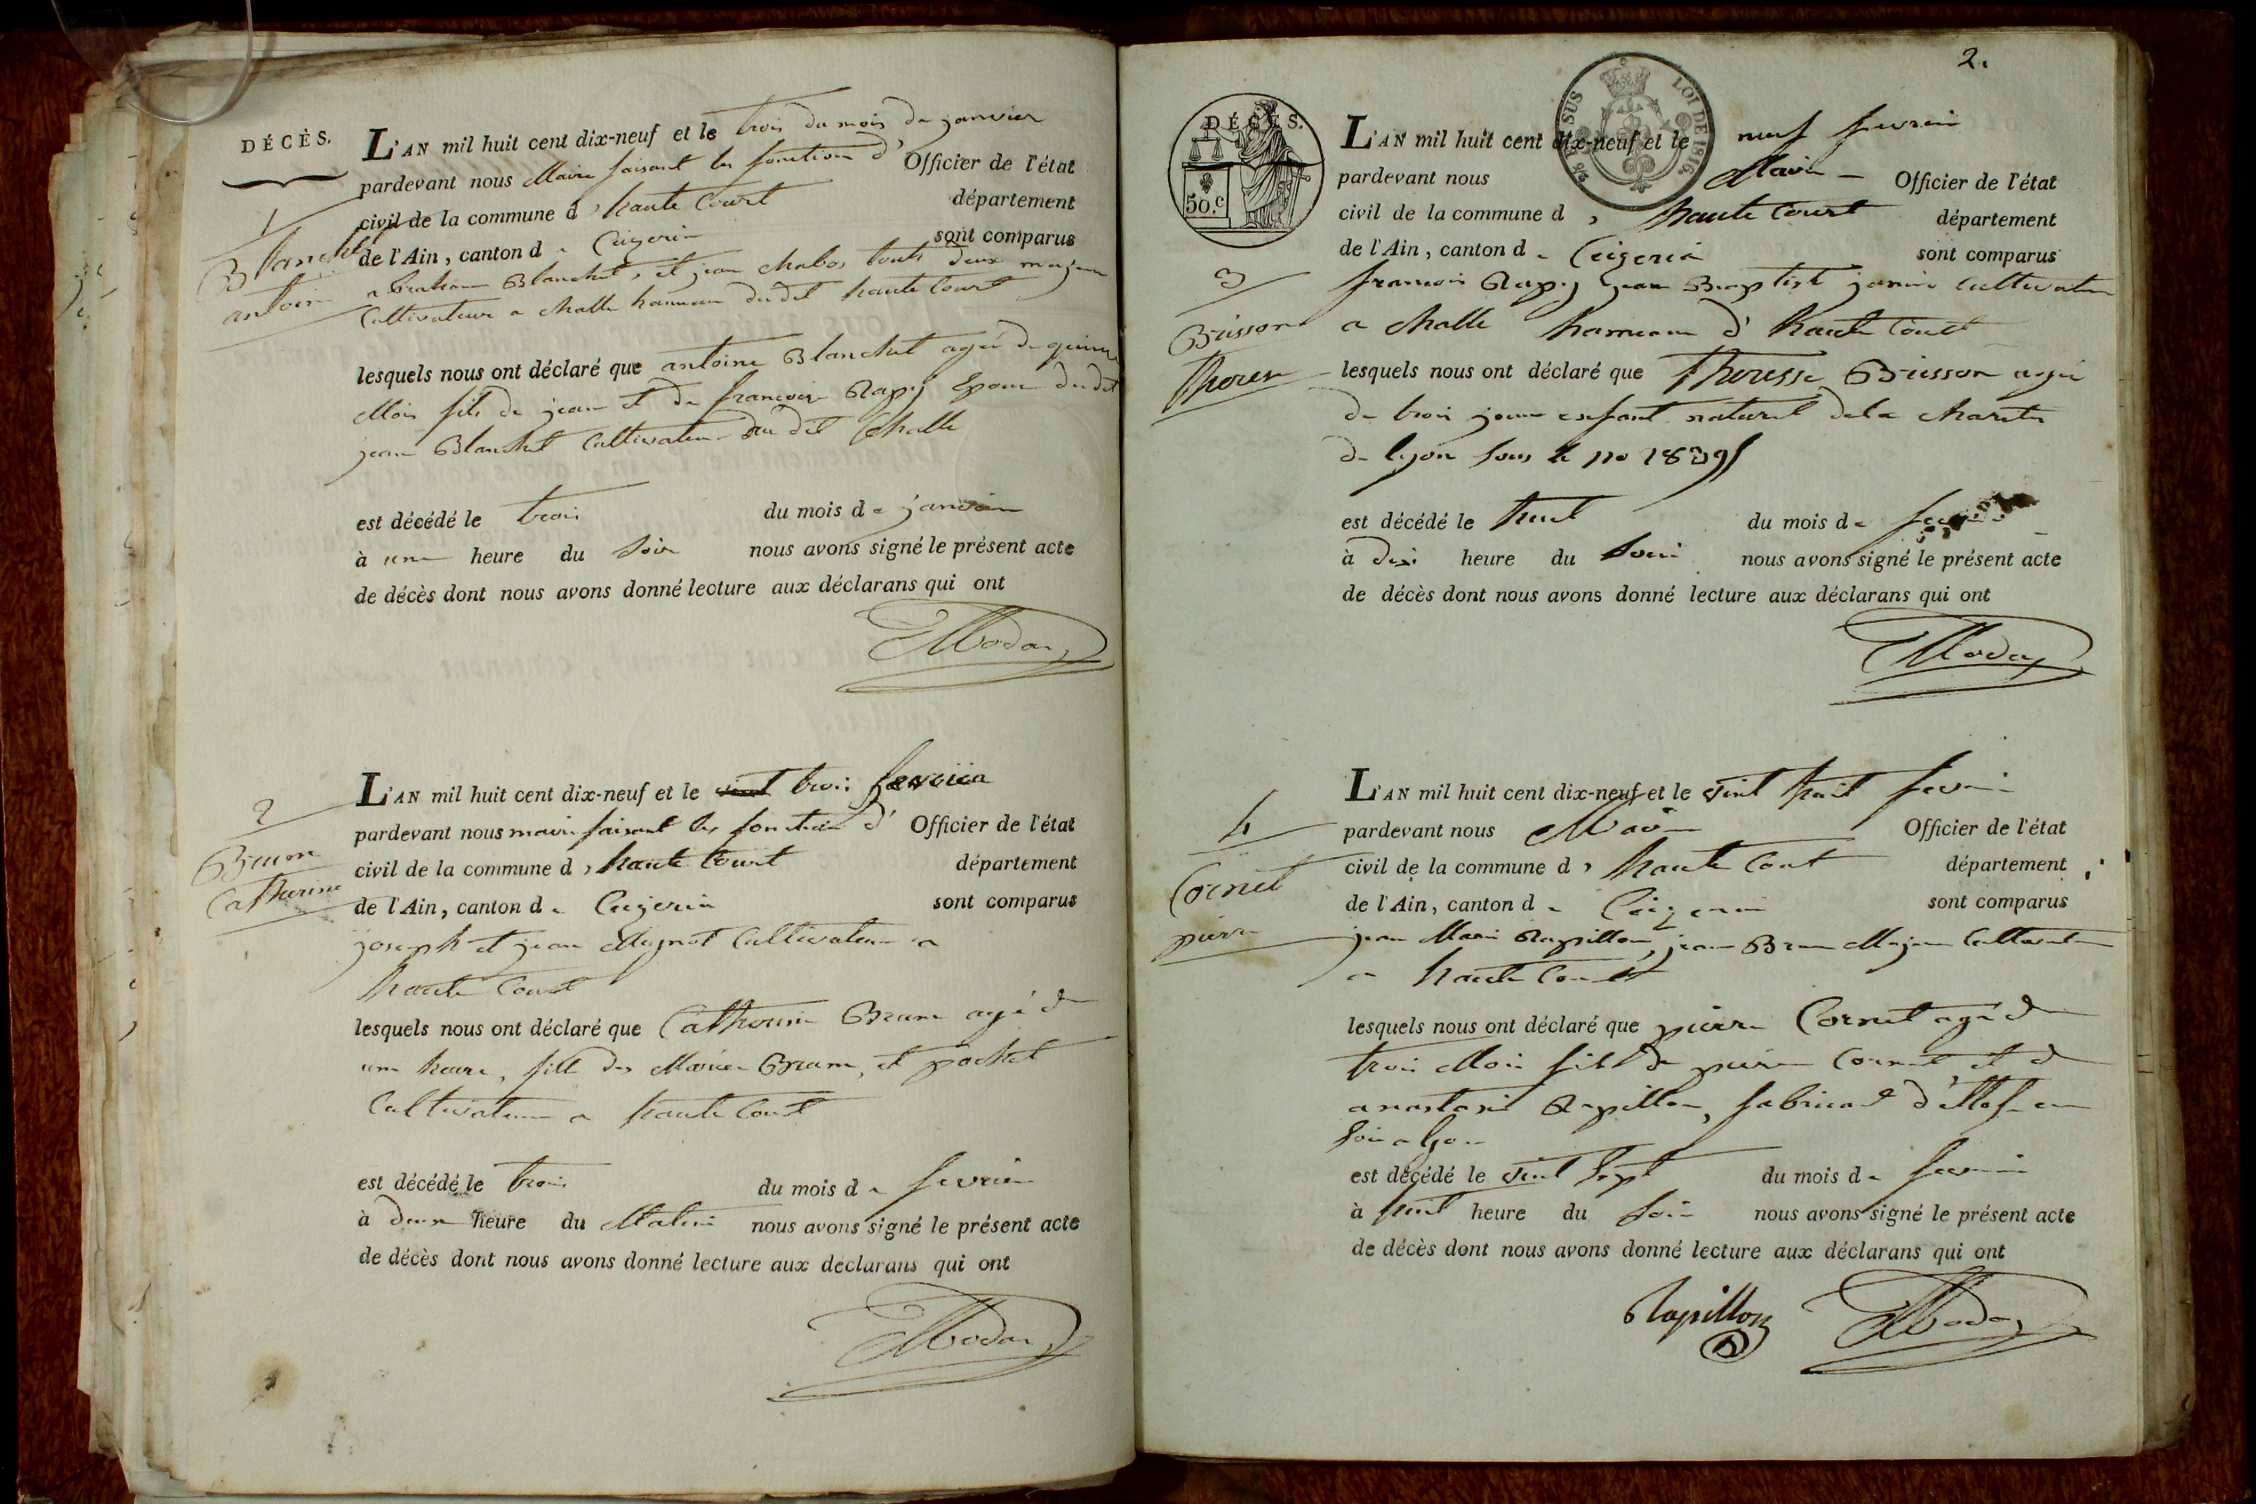 DÉCÈS.
L'AN mil huit cent dix-neuf et le trois du mois de janvier
pardevant nous Maire faisant les fonction d' Officier de l'état
civil de la commune d haute Court département
de l'Ain, canton d e Ceyzeria sont comparus
1
Blanchet
antoine
abraham Blanchet, et jean chabos touts deux majeur
Cultivateur a challe hameau dudit haute Court
lesquels nous ont déclaré que antoine Blanchet agé de quinze
Mois fils de jean et de francoise Rapy Epoux du dit
jean Blanchet Cultivateur du dit Challe
est décédé le trois du mois d e janvier
à une heure du Soir nous avons signé le présent acte
de décès dont nous avons donné lecture aux déclarans qui ont
Moday
L'AN mil huit cent dix-neuf et le trois fevrier
2
pardevant nous maire faisant les fonction d' Officier de l'état
Brun
Catherine
civil de la commune d haute Court département
de l'Ain, canton d e Ceyzeria sont comparus
joseph et jean Mugnot Cultivateur a
haute Court
lesquels nous ont déclaré que Catherine Brun agé de
une heure, fille des Brun, et pochet
Cultivateur a haute Court
est décédé le trois du mois d e fevrier
à deux heure du Matin nous avons signé le présent acte
de décès dont nous avons donné lecture aux declarans qui ont
Moday
2.
TIMB SUS LOI DE 1816.
DÉCÈS.
50.c
L'AN mil huit cent dix-neuf et le neuf fevrier
pardevant nous Maire Officier de l'état
civil de la commune d haute Court département
de l'Ain, canton d e Ceyzeria sont comparus
3
Buisson
Therese
francois Rapy jean Baptist janin Cultivateur
a challe hameau d' haute Court
lesquels nous ont déclaré que Theresse Buisson agée
de trois jours enfant naturel dela charite
de lyon sous le no
est décédé le huit du mois d e fevrier
à dix heure du Soir nous avons signé le présent acte
de décès dont nous avons donné lecture aux déclarans qui ont
Moday
L'AN mil huit cent dix-neuf et le vint huit fevrier
4
pardevant nous Maire Officier de l'état
Cornet
pierre
civil de la commune d haute Court département
de l'Ain, canton d e Ceyzeria sont comparus
jean Marie Rapillon, jean Brun Majeur Cultivateur
a haute Court
lesquels nous ont déclaré que pierre Cornet agé de
trois Mois fils de pierre Cornet, et de
anastasie Rapillon, fabricant d'ettofe en
soie a lyon
est décédé le vint sept du mois d e fevrier
à huit heure du soir nous avons signé le présent acte
de décès dont nous avons donné lecture aux déclarans qui ont
Rapillon Moday